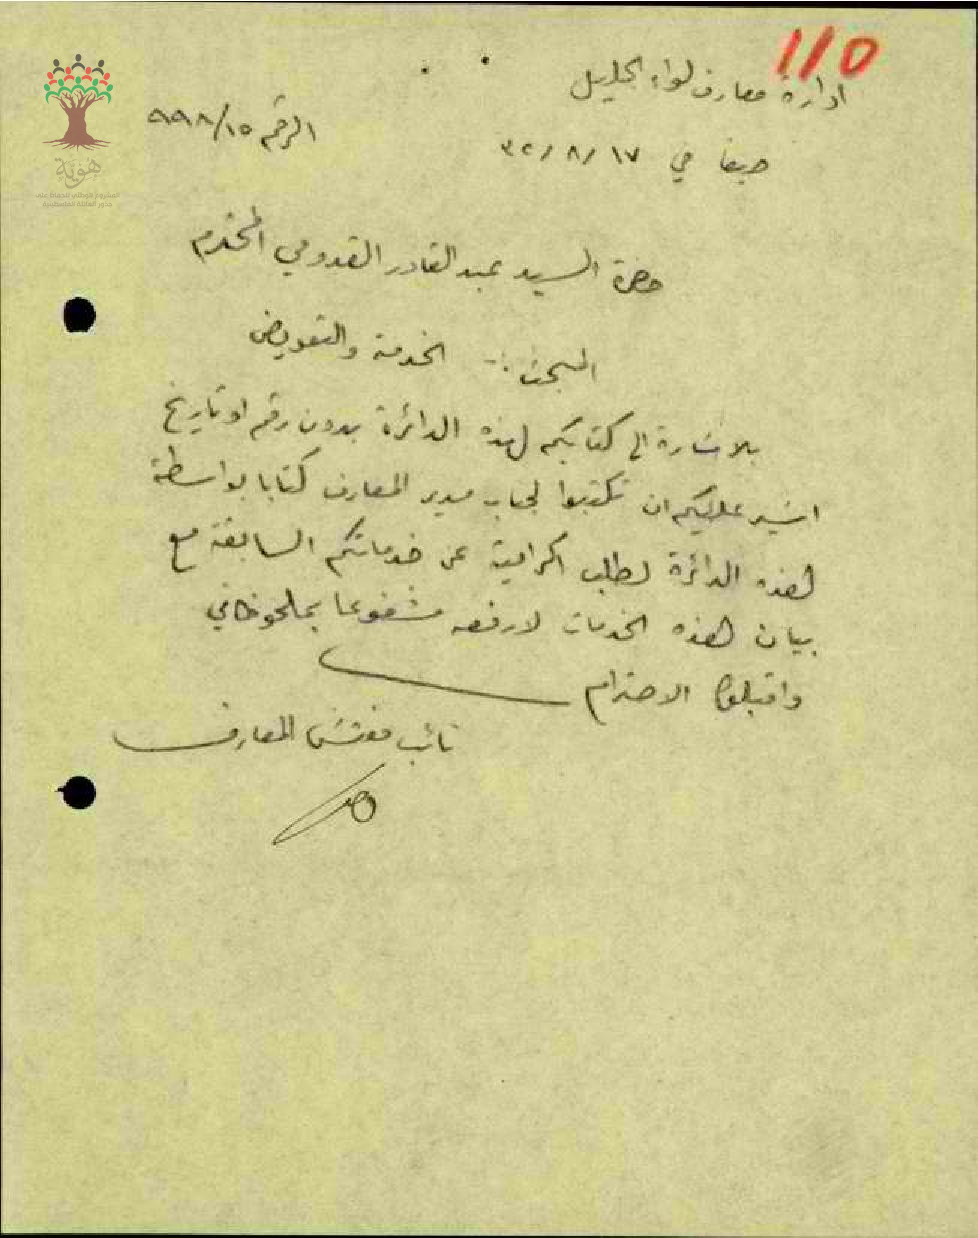 110
ادارة معارف لواء الجليل
الرقم ٩٩٨/١٥
حيفا في ١٧/٨/٣٢
حضرة السيد عبد القادر القدومي المحترم
المبحث :- الخدمة والتعويض
بالاشارة الى كتابكم لهذه الدائرة بدون رقم او تاريخ
اشير عليكم ان تكتبوا لجناب مدير المعارف كتابا بواسطة
هذه الدائرة لطلب اكرامية عن خدماتكم السابقة مع
بيان هذه الخدمات لارفعه مشفوعا بملحوظاتي
واقبلوا الاحترام
نائب مفتش المعارف
هوية
المشروع الوطني للحفاظ على
جذور العائلة الفلسطينية